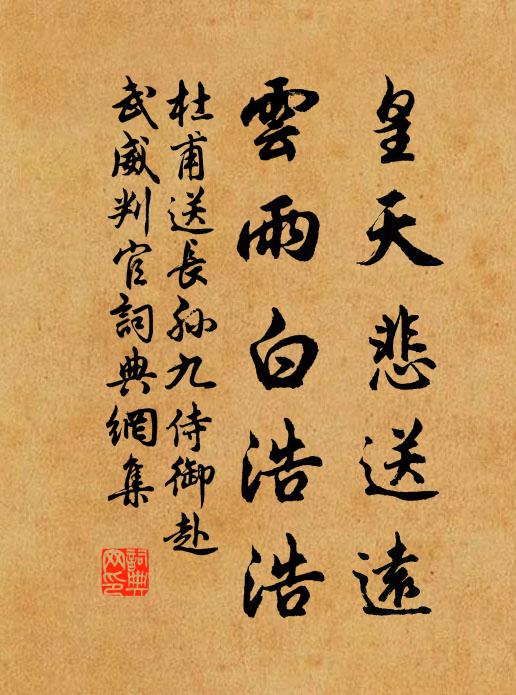 皇天悲送遠
雲雨白浩浩
杜甫送長孫九侍御赴
武威判官詞典網集
詞典網印